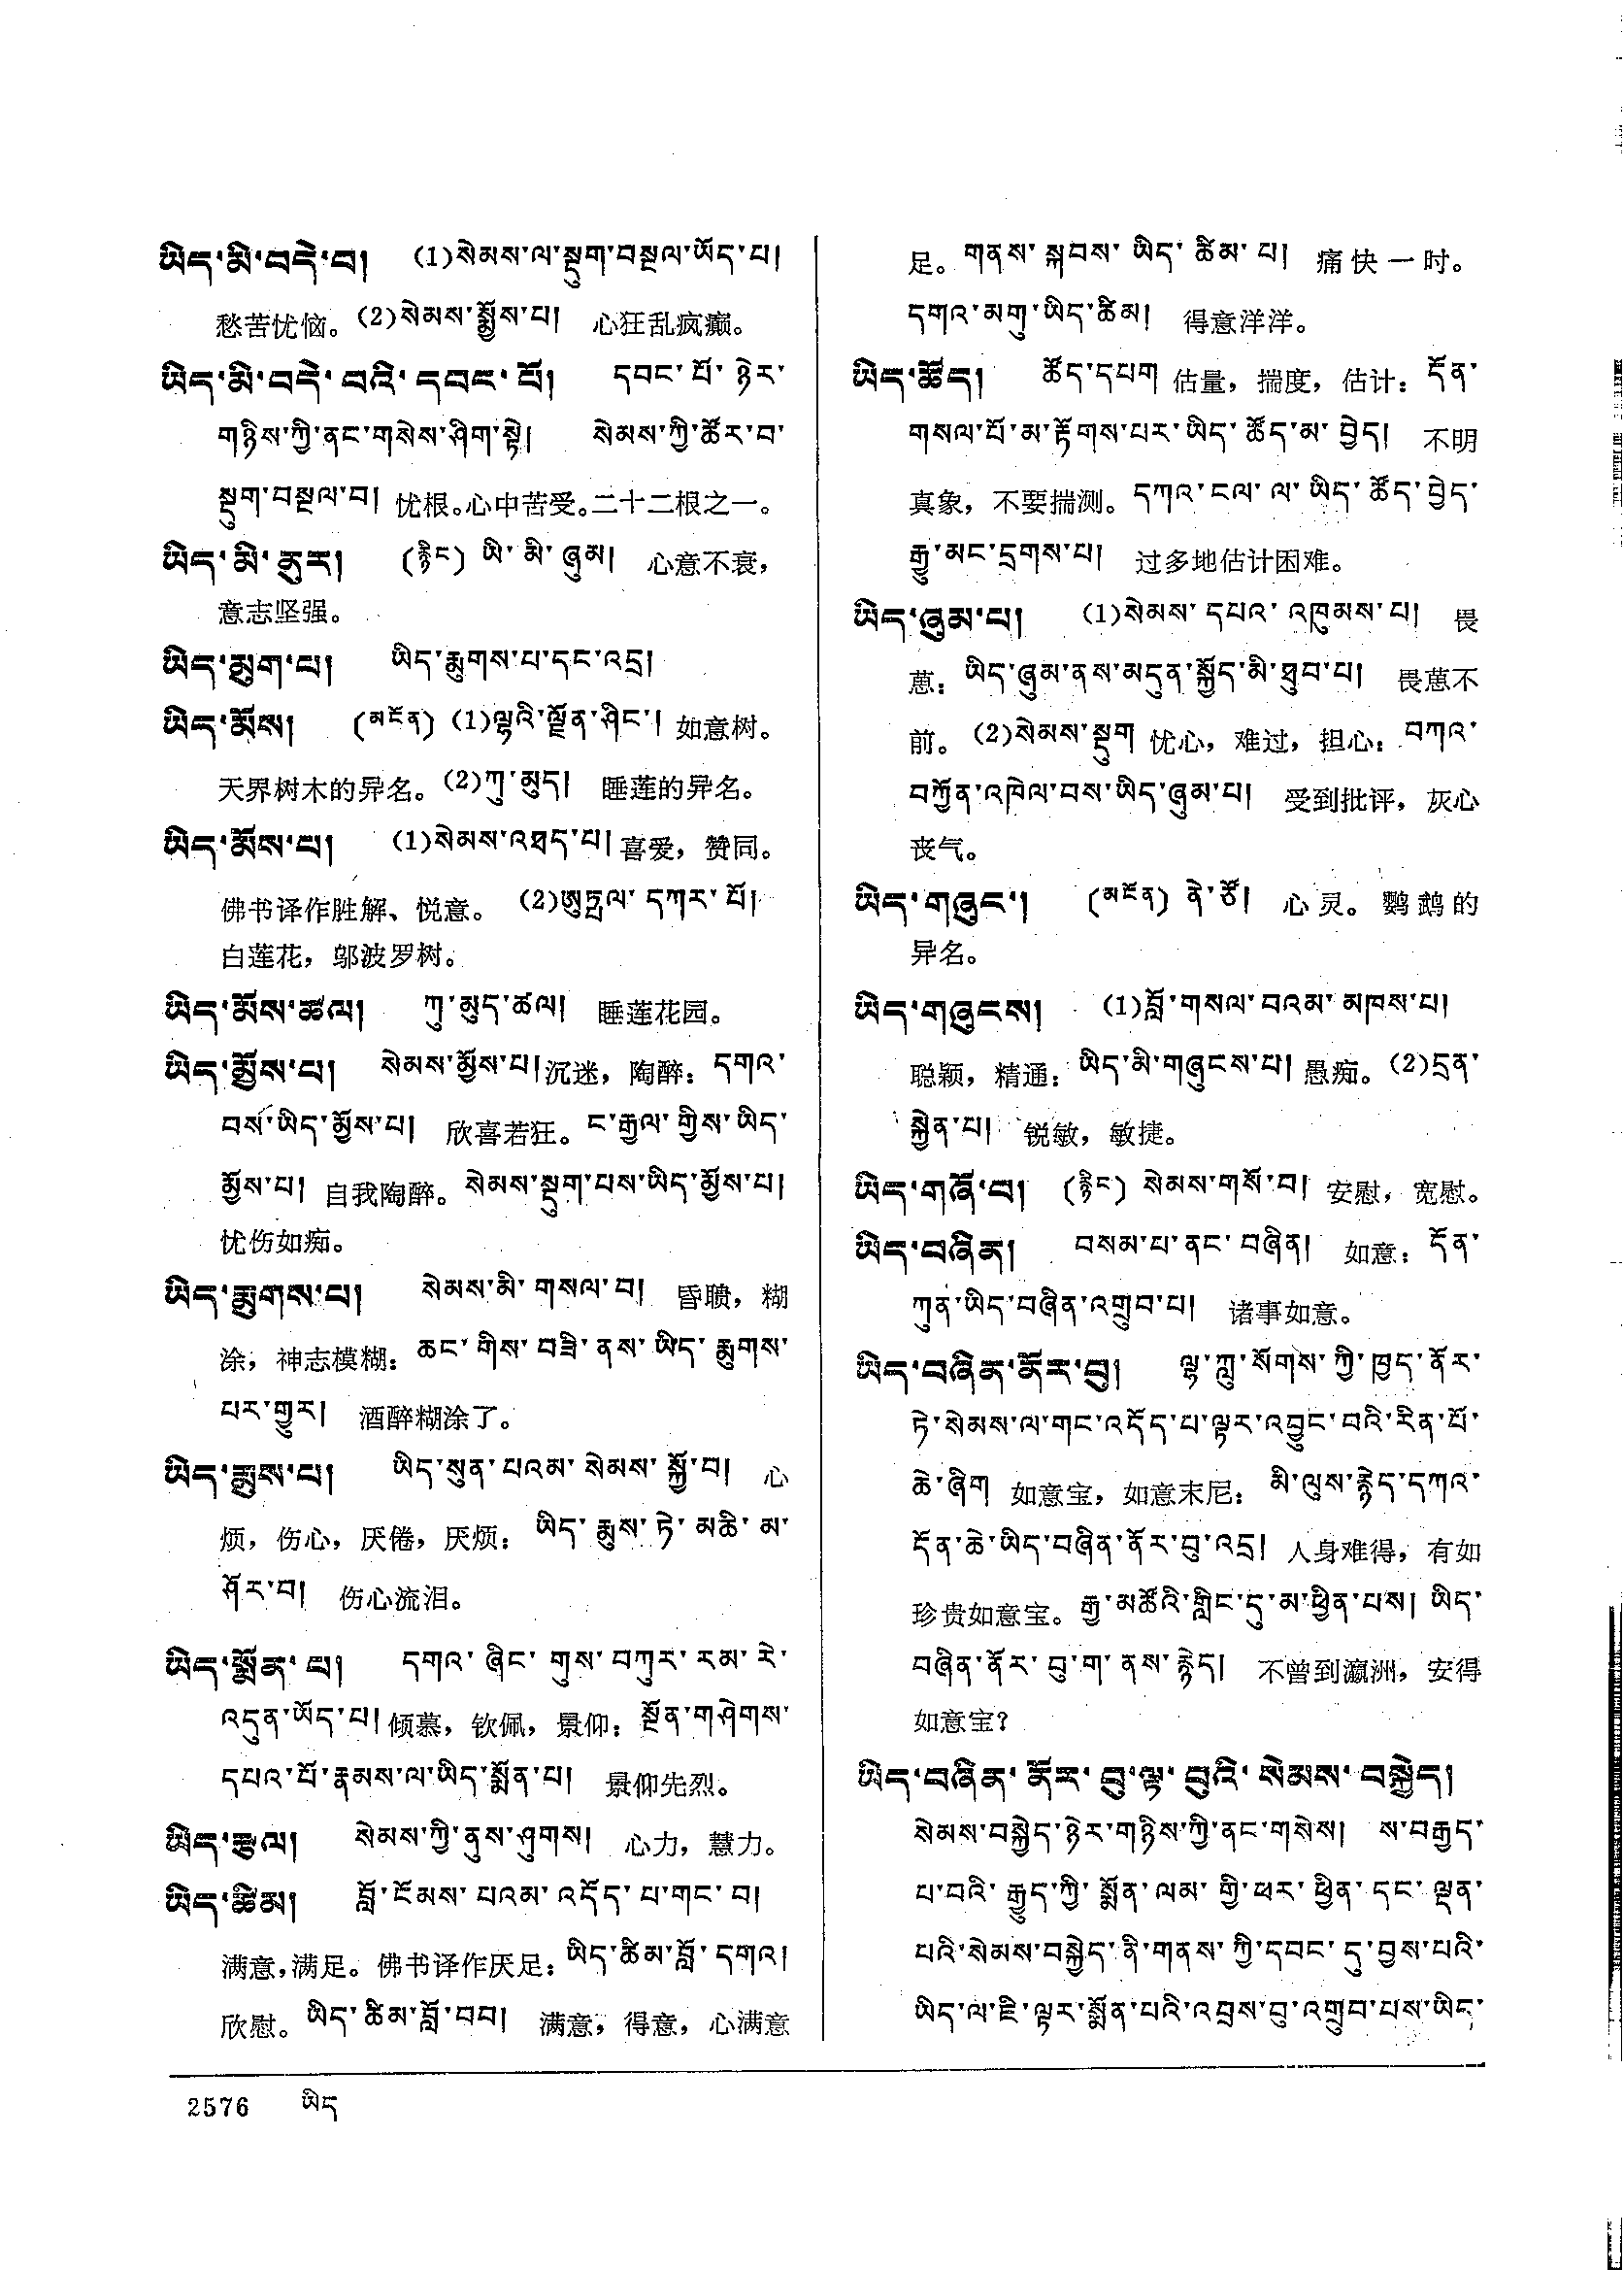 ཡིད་མི་བདེ་བ། (1)སེམས་ལ་སྡུག་བསྔལ་ཡོད་པ།
愁苦忧恼。(2)སེམས་སྨྱོས་པ། 心狂乱疯癫。
ཡིད་མི་བདེ་བའི་དབང་པོ། དབང་པོ་ཉེར་
གཉིས་ཀྱི་ནང་གསེས་ཤིག་སྟེ། སེམས་ཀྱི་ཚོར་བ་
སྡུག་བསྔལ་བ། 忧根。心中苦受。二十二根之一。
ཡིད་མི་ནུར། (རྙིང) ཡི་མི་ཞུམ། 心意不衰，
意志坚强。
ཡིད་མུག་པ། ཡིད་རྨུགས་པ་དང་འདྲ།
ཡིད་མོས། (མངོན) (1)ལྷའི་ལྗོན་ཤིང་། 如意树。
天界树木的异名。(2)ཀུ་མུད། 睡莲的异名。
ཡིད་མོས་པ། (1)སེམས་འཐད་པ། 喜爱，赞同。
佛书译作胜解、悦意。(2)ཨུཏྤལ་དཀར་པོ།
白莲花，邬波罗树。
ཡིད་མོས་ཚལ། ཀུ་མུད་ཚལ། 睡莲花园。
ཡིད་མྱོས་པ། སེམས་མྱོས་པ། 沉迷，陶醉：དགའ་
བས་ཡིད་མྱོས་པ། 欣喜若狂。ང་རྒྱལ་གྱིས་ཡིད་
མྱོས་པ། 自我陶醉。སེམས་སྡུག་པས་ཡིད་མྱོས་པ།
忧伤如痴。
ཡིད་རྨུགས་པ། སེམས་མི་གསལ་བ། 昏聩，糊
涂，神志模糊：ཆང་གིས་བཟི་ནས་ཡིད་རྨུགས་
པར་གྱུར། 酒醉糊涂了。
ཡིད་རྨུས་པ། ཡིད་སུན་པའམ་སེམས་སྐྱོ་བ། 心
烦，伤心，厌倦，厌烦：ཡིད་རྨུས་ཏེ་མཆི་མ་
ཤོར་བ། 伤心流泪。
ཡིད་སྨོན་པ། དགའ་ཞིང་གུས་བཀུར་རམ་རེ་
འདུན་ཡོད་པ། 倾慕，钦佩，景仰：སྔོན་གཤེགས་
དཔའ་པོ་རྣམས་ལ་ཡིད་སྨོན་པ། 景仰先烈。
ཡིད་རྩལ། སེམས་ཀྱི་ནུས་ཤུགས། 心力，慧力。
ཡིད་ཚིམ། བློ་ངོམས་པའམ་འདོད་པ་གང་བ།
满意，满足。佛书译作厌足：ཡིད་ཚིམ་བློ་དགའ།
欣慰。ཡིད་ཚིམ་བློ་བབ། 满意，得意，心满意
足。གནས་སྐབས་ཡིད་ཚིམ་པ། 痛快一时。
དགའ་མགུ་ཡིད་ཚིམ། 得意洋洋。
ཡིད་ཚོད། ཚོད་དཔག 估量，揣度，估计：དོན་
གསལ་པོ་མ་རྟོགས་པར་ཡིད་ཚོད་མ་བྱེད། 不明
真象，不要揣测。དཀའ་ངལ་ལ་ཡིད་ཚོད་བྱེད་
རྒྱུ་མང་དྲགས་པ། 过多地估计困难。
ཡིད་ཞུམ་པ། (1)སེམས་དཔའ་འཁུམས་པ། 畏
葸：ཡིད་ཞུམ་ནས་མདུན་སྐྱོད་མི་ཐུབ་པ། 畏葸不
前。(2)སེམས་སྡུག 忧心，难过，担心：བཀའ་
བཀྱོན་འཁེལ་བས་ཡིད་ཞུམ་པ། 受到批评，灰心
丧气。
ཡིད་གཞུང་། (མངོན) ནེ་ཙོ། 心灵。鹦鹉的
异名。
ཡིད་གཞུངས། (1)བློ་གསལ་བའམ་མཁས་པ།
聪颖，精通：ཡིད་མི་གཞུངས་པ། 愚痴。(2)དྲན་
སྐྱེན་པ། 锐敏，敏捷。
ཡིད་གཞོ་བ། (རྙིང) སེམས་གསོ་བ། 安慰，宽慰。
ཡིད་བཞིན། བསམ་པ་ནང་བཞིན། 如意：དོན་
ཀུན་ཡིད་བཞིན་འགྲུབ་པ། 诸事如意。
ཡིད་བཞིན་ནོར་བུ། ལྷ་ཀླུ་སོགས་ཀྱི་ཁྱད་ནོར་
ཏེ་སེམས་ལ་གང་འདོད་པ་ལྟར་འབྱུང་བའི་རིན་པོ་
ཆེ་ཞིག 如意宝，如意末尼：མི་ལུས་རྙེད་དཀའ་
དོན་ཆེ་ཡིད་བཞིན་ནོར་བུ་འདྲ། 人身难得，有如
珍贵如意宝。རྒྱ་མཚོའི་གླིང་དུ་མ་ཕྱིན་པས། ཡིད་
བཞིན་ནོར་བུ་ག་ནས་རྙེད། 不曾到瀛洲，安得
如意宝？
ཡིད་བཞིན་ནོར་བུ་ལྟ་བུའི་སེམས་བསྐྱེད།
སེམས་བསྐྱེད་ཉེར་གཉིས་ཀྱི་ནང་གསེས། ས་བརྒྱད་
པ་བའི་རྒྱུད་ཀྱི་སྨོན་ལམ་གྱི་ཕར་ཕྱིན་དང་ལྡན་
པའི་སེམས་བསྐྱེད་ནི་གནས་ཀྱི་དབང་དུ་བྱས་པའི་
ཡིད་ལ་ཇི་ལྟར་སྨོན་པའི་འབྲས་བུ་འགྲུབ་པས་ཡིད་
2576 ཡིད